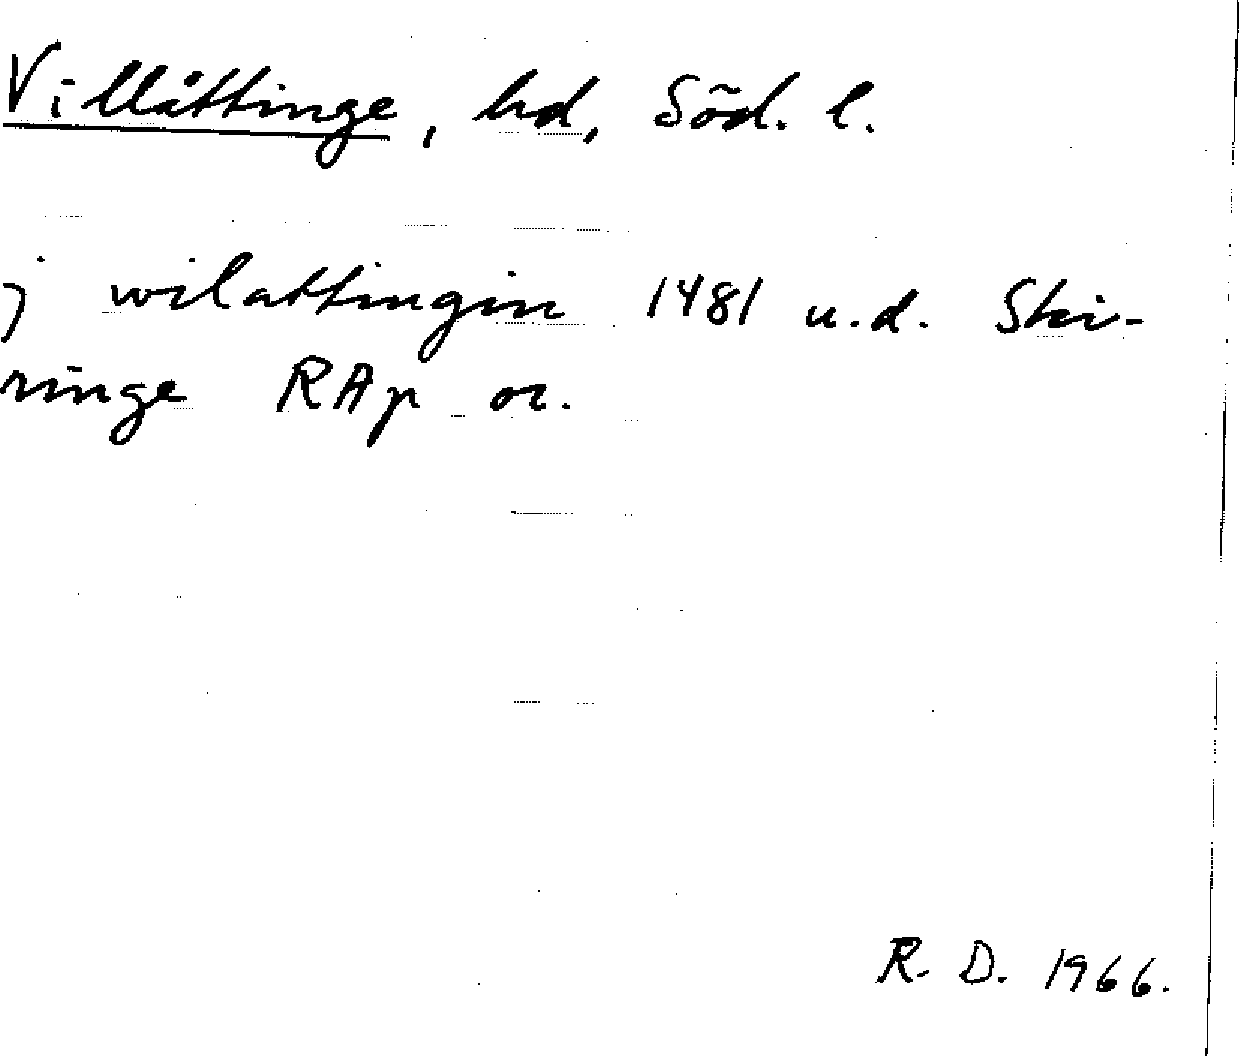 Villåttinge, hd, Söd. l.
j wilattingin 1481 u.d. Ski-
ringe RAp or.
R. D. 1966.